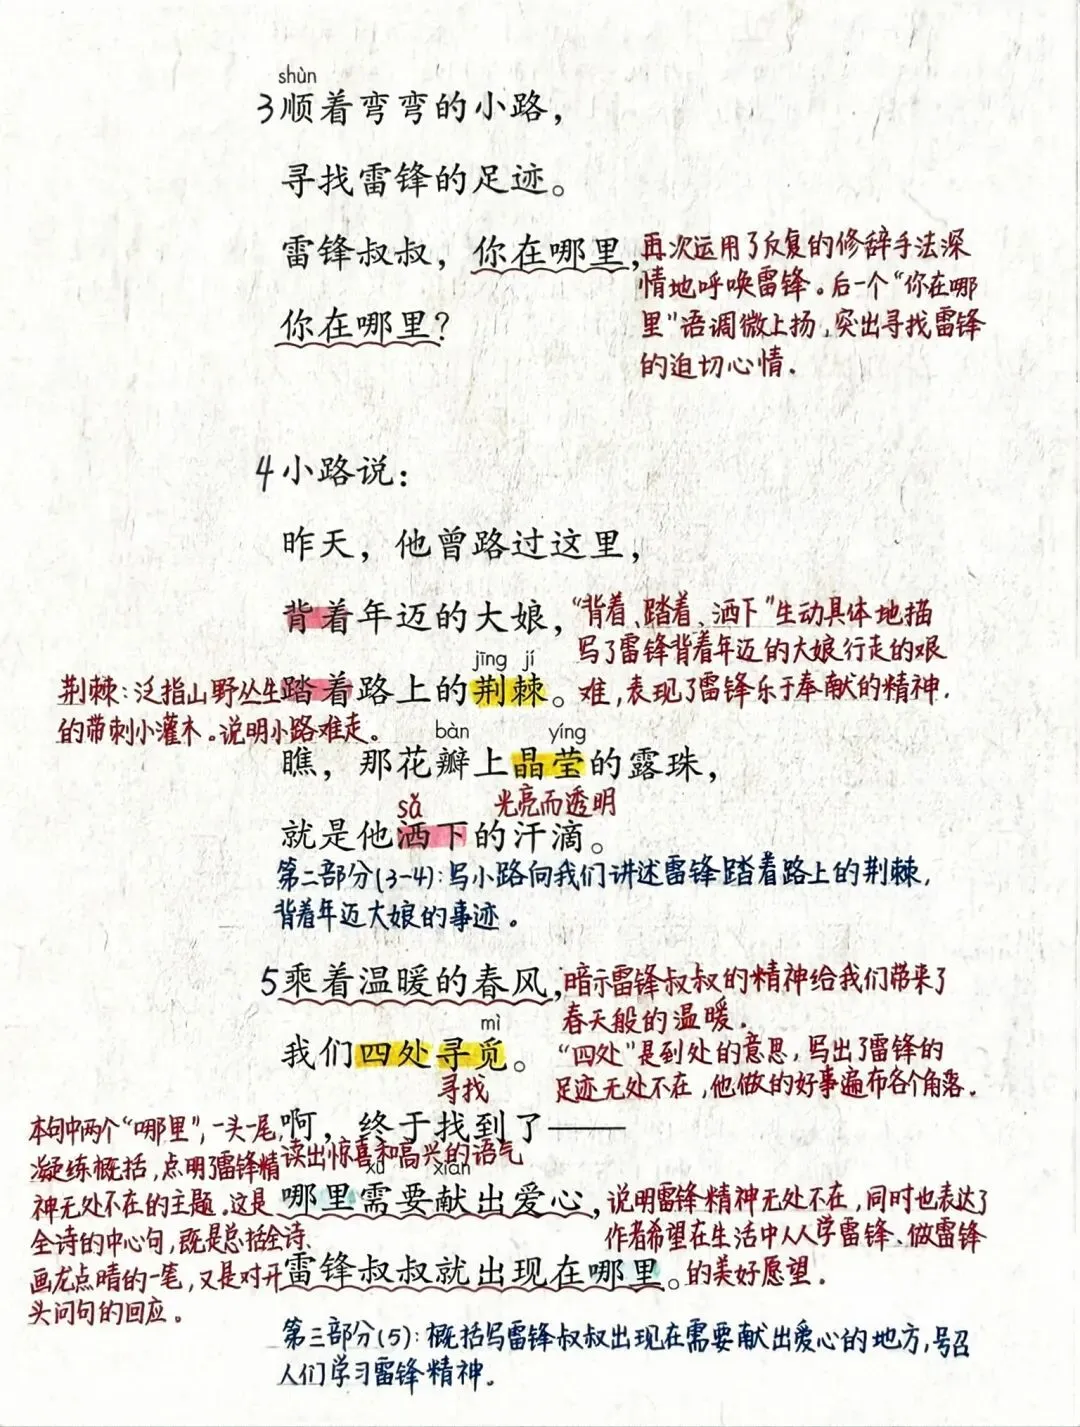 shùn
3顺着弯弯的小路，
寻找雷锋的足迹。
雷锋叔叔，你在哪里，
你在哪里？
再次运用了反复的修辞手法深
情地呼唤雷锋。后一个“你在哪
里”语调微上扬，突出寻找雷锋
的迫切心情.
4小路说：
昨天，他曾路过这里，
背着年迈的大娘，
“背着、踏着、洒下”生动具体地描
写了雷锋背着年迈的大娘行走的艰
难，表现了雷锋乐于奉献的精神.
jīng jí
踏着路上的荆棘。
荆棘：泛指山野丛生
的带刺小灌木。说明小路难走。
bàn yíng
瞧，那花瓣上晶莹的露珠，
光亮而透明
sǎ
就是他洒下的汗滴。
第二部分(3-4)：写小路向我们讲述雷锋踏着路上的荆棘，
背着年迈大娘的事迹。
5乘着温暖的春风，
暗示雷锋叔叔的精神给我们带来了
春天般的温暖.
mì
我们四处寻觅。
寻找
“四处”是到处的意思，写出了雷锋的
足迹无处不在，他做的好事遍布各个角落.
啊，终于找到了——
读出惊喜和高兴的语气
xū xiàn
哪里需要献出爱心，
雷锋叔叔就出现在哪里。
本句中两个“哪里”，一头一尾，
凝练概括，点明了雷锋精
神无处不在的主题.这是
全诗的中心句，既是总括全诗、
画龙点晴的一笔，又是对开
头问句的回应。
说明雷锋精神无处不在，同时也表达了
作者希望在生活中人人学雷锋、做雷锋
的美好愿望.
第三部分(5)：概括写雷锋叔叔出现在需要献出爱心的地方，号召
人们学习雷锋精神.